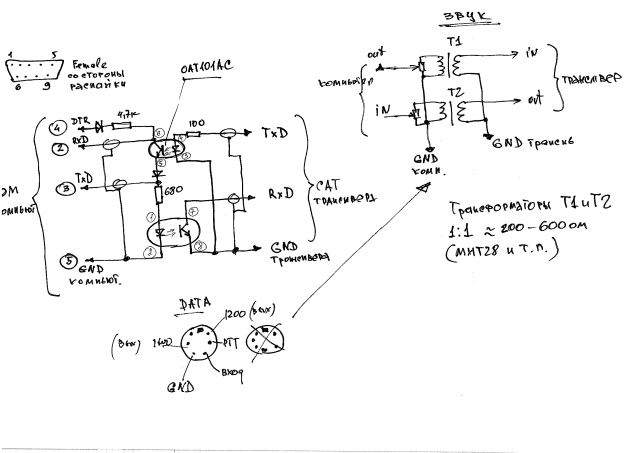 ЗВУК
1 5
Female
со стороны
распайки
6 9
OAT101AC
out
T1
iN
компьютер
трансивер
iN
T2
out
GND трансив
GND
комп.
4 DTR 4,7к
100
TxD
2 RxD
3 TxD
680
RxD
CAT
трансивера
компьют
5 GND
компьют.
GND
трансивера
Трансформаторы Т1 и Т2
1:1 ≈ 200-600 ом
(МИТ28 и т.п.)
DATA
1200 (вых)
(вых)
PTT
вход
GND